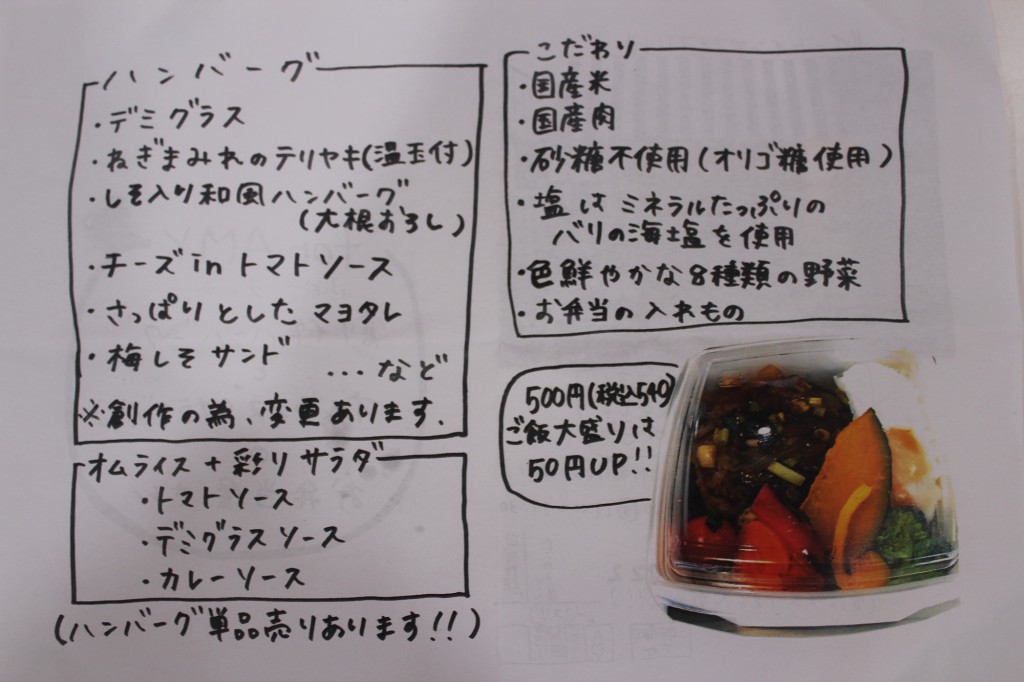 ハンバーグ
・デミグラス
・ねぎまみれのテリヤキ(温玉付)
・しそ入り和風ハンバーグ
(大根おろし)
・チーズinトマトソース
・さっぱりとしたマヨタレ
・梅しそサンド
...など
※創作の為、変更あります.
オムライス+彩りサラダ
・トマトソース
・デミグラスソース
・カレーソース
(ハンバーグ単品売りあります!!)
こだわり
・国産米
・国産肉
・砂糖不使用(オリゴ糖使用)
・塩はミネラルたっぷりの
バリの海塩を使用
・色鮮やかな8種類の野菜
・お弁当の入れもの
500円(税込540)
ご飯大盛りは
50円UP!!